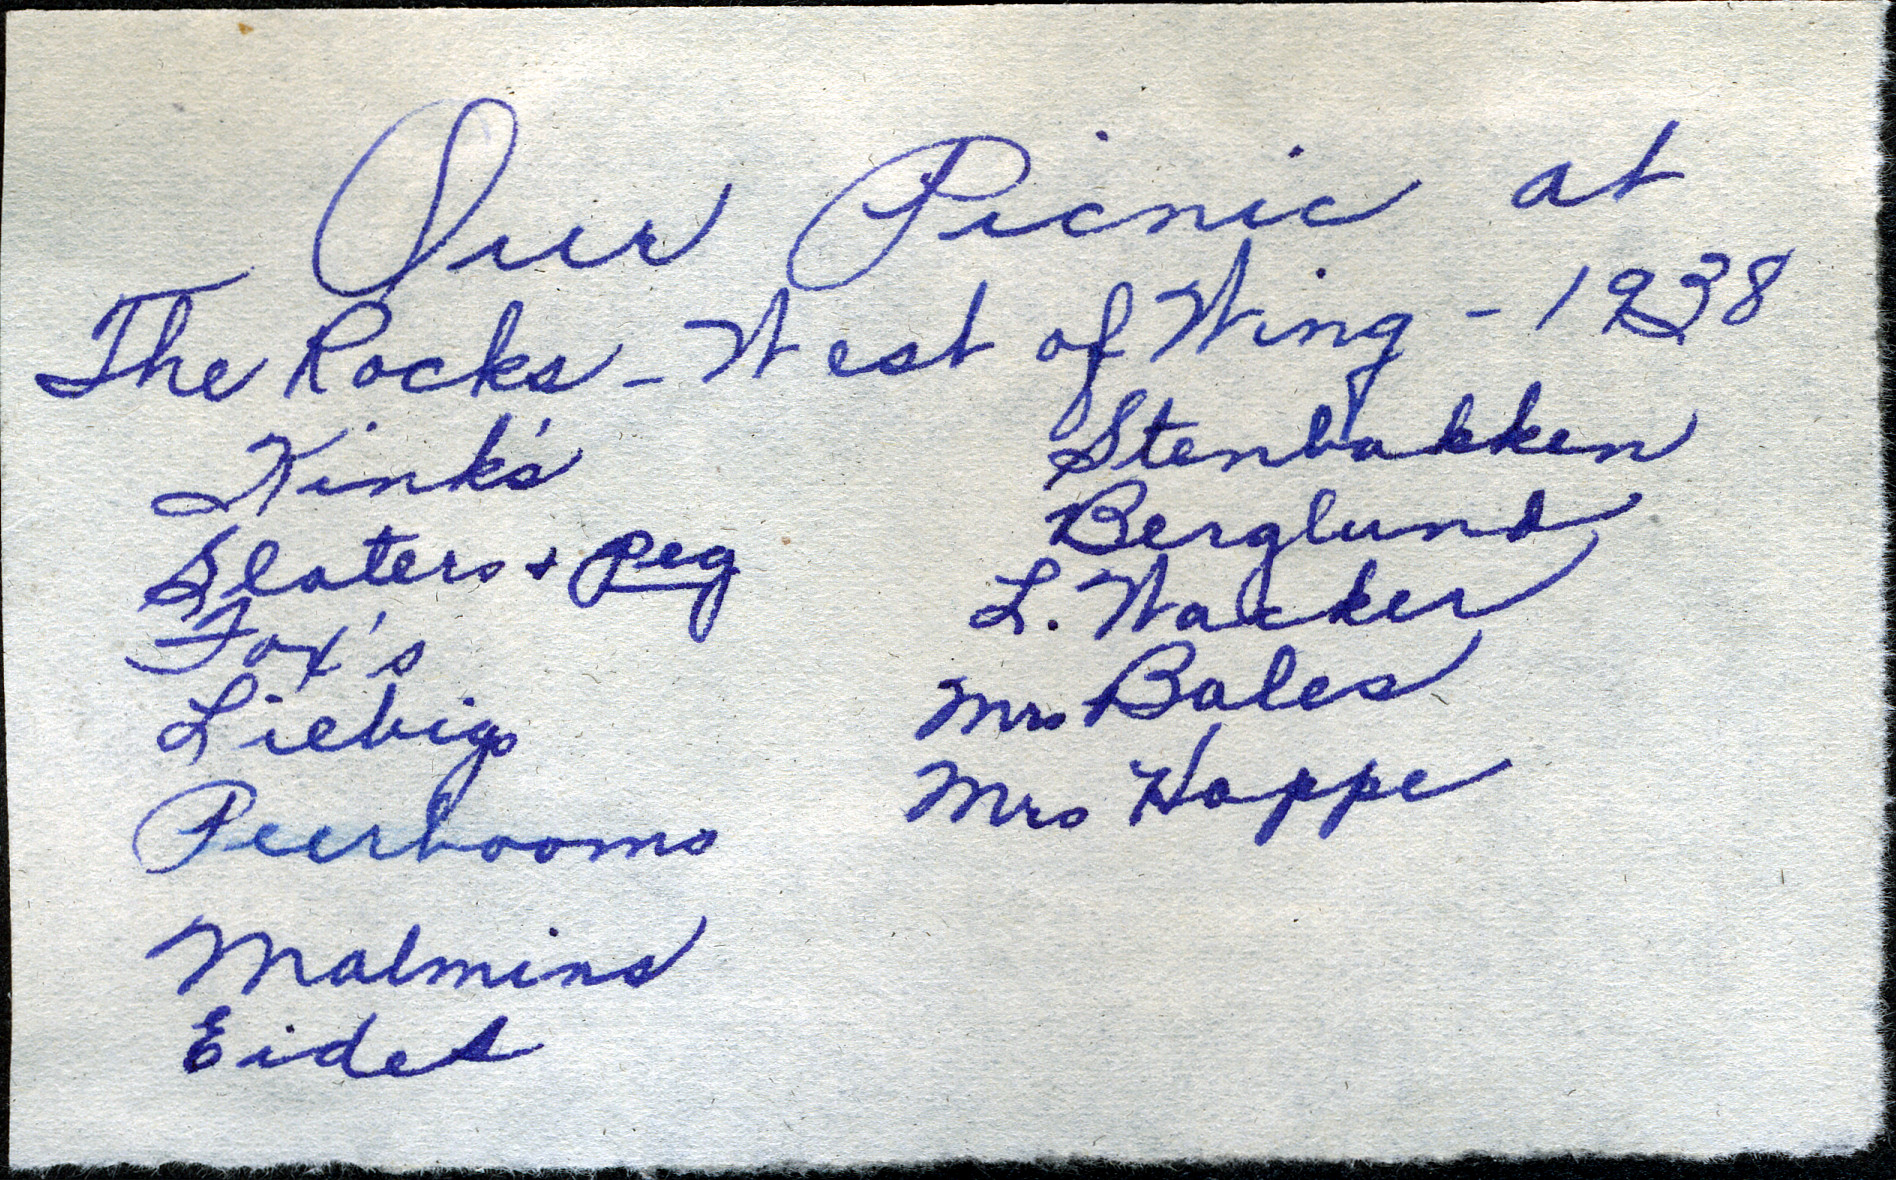 Our Picnic at
The Rocks - West of Wing - 1938
Kink's
Slaters + Peg
Fox's
Liebigs
Peerbooms
Malmins
Eides
Stenbakken
Berglund
L. Wacker
Mrs Bales
Mrs Hoppe